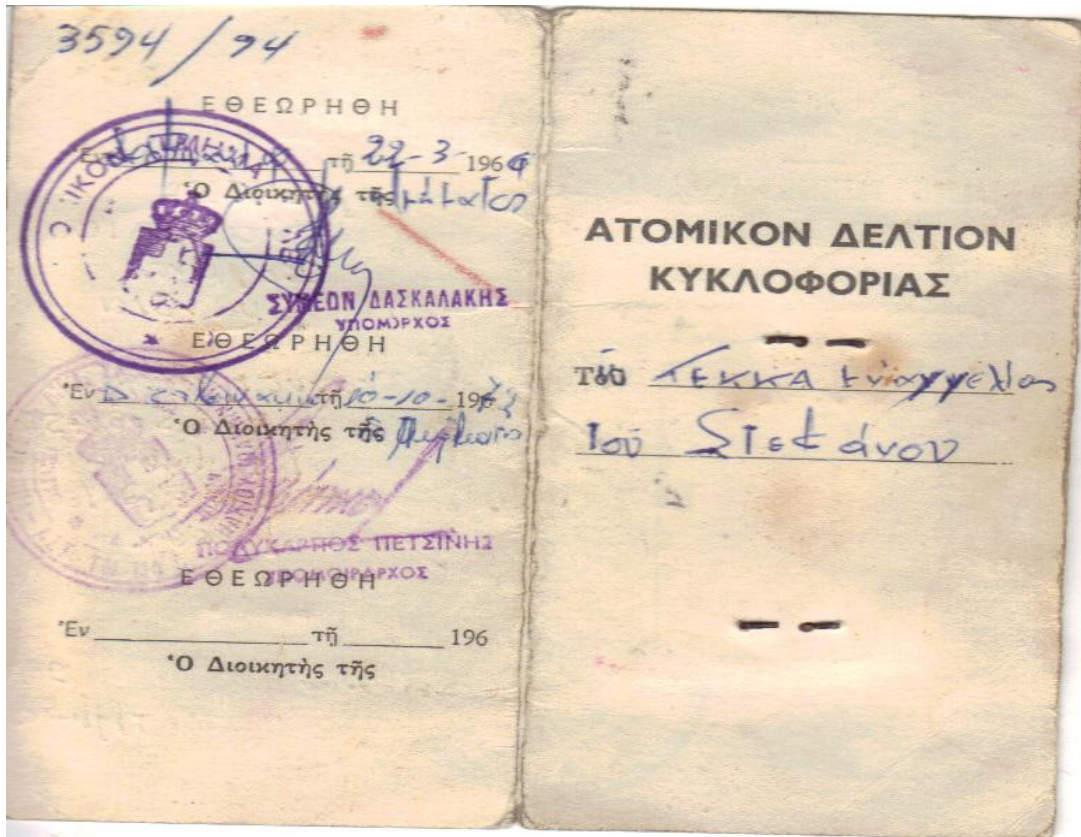 3594/94
ΕΘΕΩΡΗΘΗ
τῇ 22-3-1966
Ὁ Διοικητὴς τῆς
ΣΥΜΕΩΝ ΔΑΣΚΑΛΑΚΗΣ
ΥΠΟΜ/ΡΧΟΣ
ΕΘΕΩΡΗΘΗ
Ἐν τῇ 10-10-196
Ὁ Διοικητὴς τῆς
ΠΟΛΥΚΑΡΠΟΣ ΠΕΤΣΙΝΗΣ
ΥΠΟΜΟΙΡΑΡΧΟΣ
ΕΘΕΩΡΗΘΗ
Ἐν τῇ 196
Ὁ Διοικητὴς τῆς
ΑΤΟΜΙΚΟΝ ΔΕΛΤΙΟΝ
ΚΥΚΛΟΦΟΡΙΑΣ
ΓΕΚΚΑ Εὐαγγελίας
Τοῦ Στεφάνου